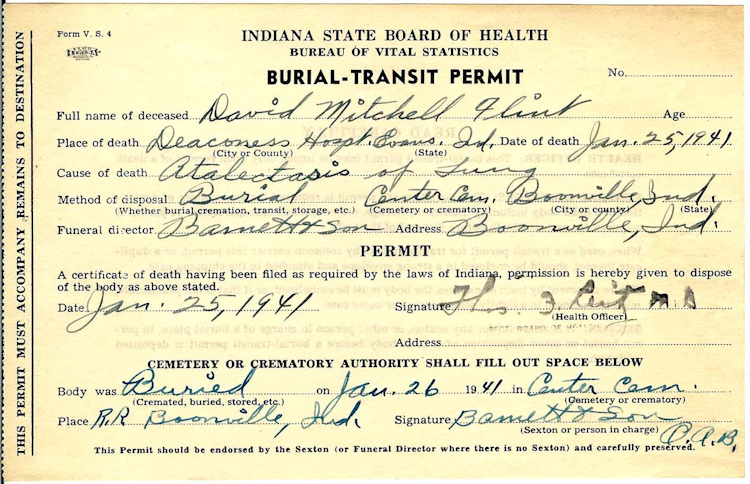 THIS PERMIT MUST ACCOMPANY REMAINS TO DESTINATION
Form V. S. 4
INDIANA STATE BOARD OF HEALTH
BUREAU OF VITAL STATISTICS
BURIAL-TRANSIT PERMIT
No.
Full name of deceased David Mitchell Flint Age
Place of death Deaconess Hospt. Evans. Ind. Date of death Jan. 25, 1941
(City or County) (State)
Cause of death Atalectasis of Lung
Method of disposal Burial Center Cem. Boonville, Ind.
(Whether burial cremation, transit, storage, etc.) (Cemetery or crematory) (City or county) (State)
Funeral director Barnett & Son Address Boonville, Ind.
PERMIT
A certificate of death having been filed as required by the laws of Indiana, permission is hereby given to dispose
of the body as above stated.
Date Jan. 25, 1941 Signature Thos. M.D
(Health Officer)
Address
CEMETERY OR CREMATORY AUTHORITY SHALL FILL OUT SPACE BELOW
Body was Buried on Jan. 26 1941 in Center Cem.
(Cremated, buried, stored, etc.) (Cemetery or crematory)
Place R.R Boonville, Ind. Signature Barnett & Son
(Sexton or person in charge) C.A.B.
This Permit should be endorsed by the Sexton (or Funeral Director where there is no Sexton) and carefully preserved.